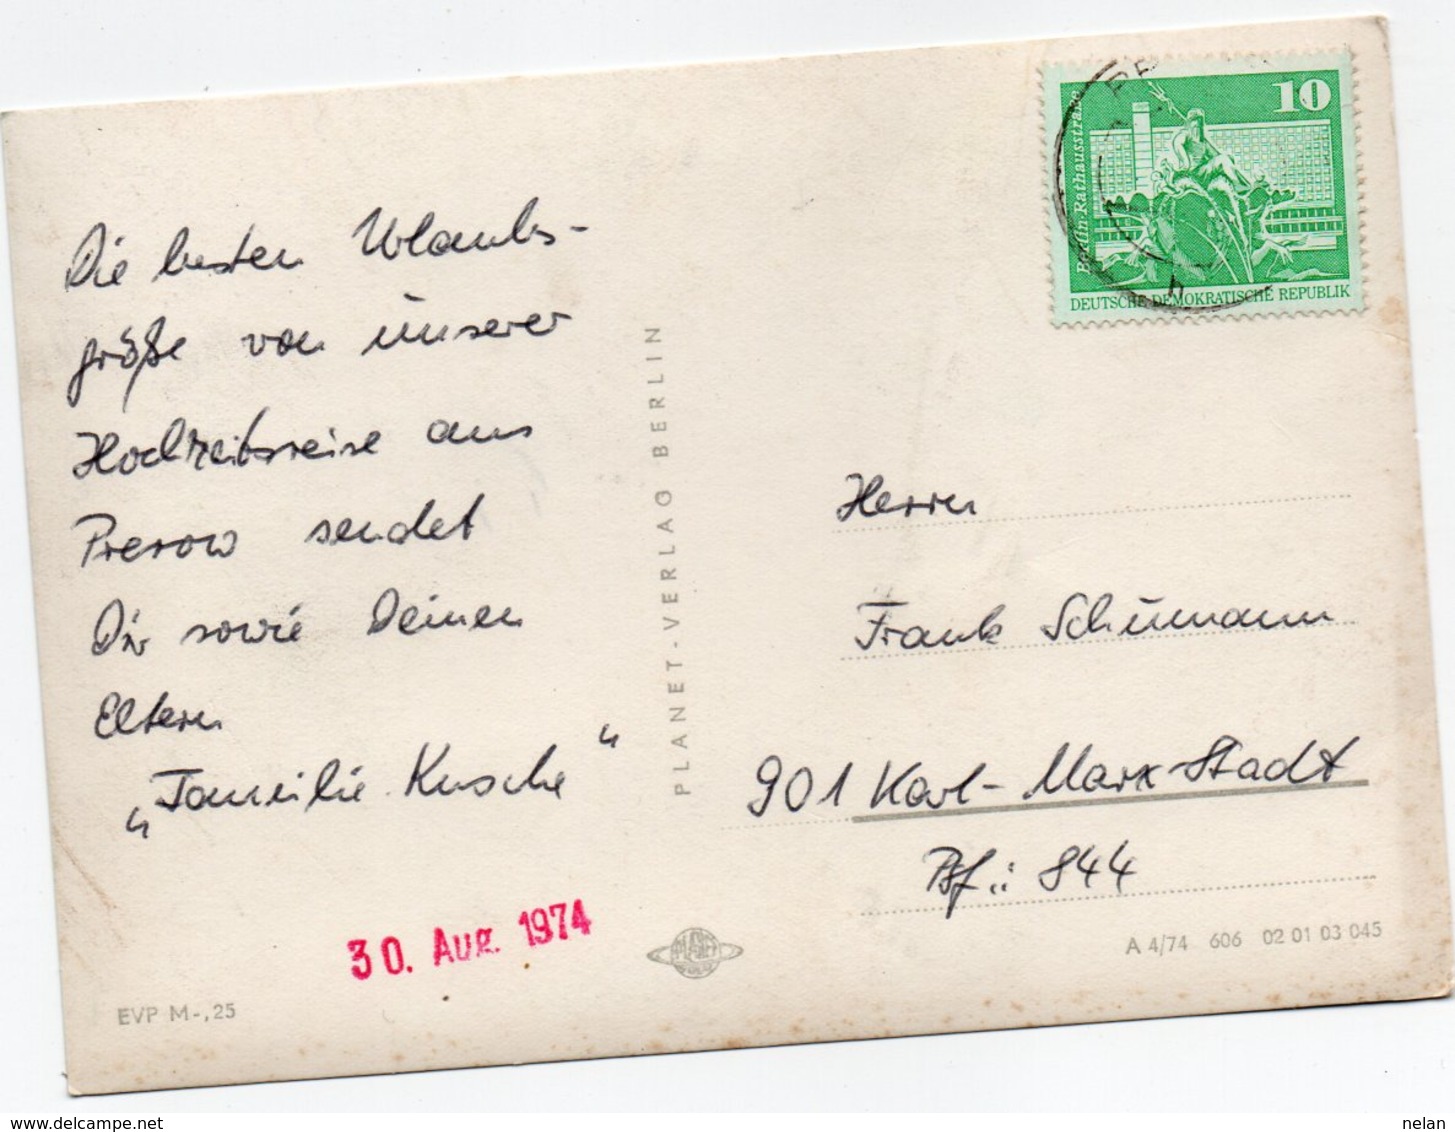 Die besten Urlaubs-
größe von unserer
Hochzeitsreise aus
Prerow sendet
Dir sowie Deinen
Eltern
„Familie Kusche“
30. Aug. 1974
EVP M -,25
PLANET-VERLAG BERLIN
PLANET
10
Berlin-Rathausstraße
DEUTSCHE DEMOKRATISCHE REPUBLIK
Herrn
Frank Schumann
901 Karl-Marx-Stadt
Psf.: 844
A 4/74 606 02 01 03 045
www.delcampe.net
nelan